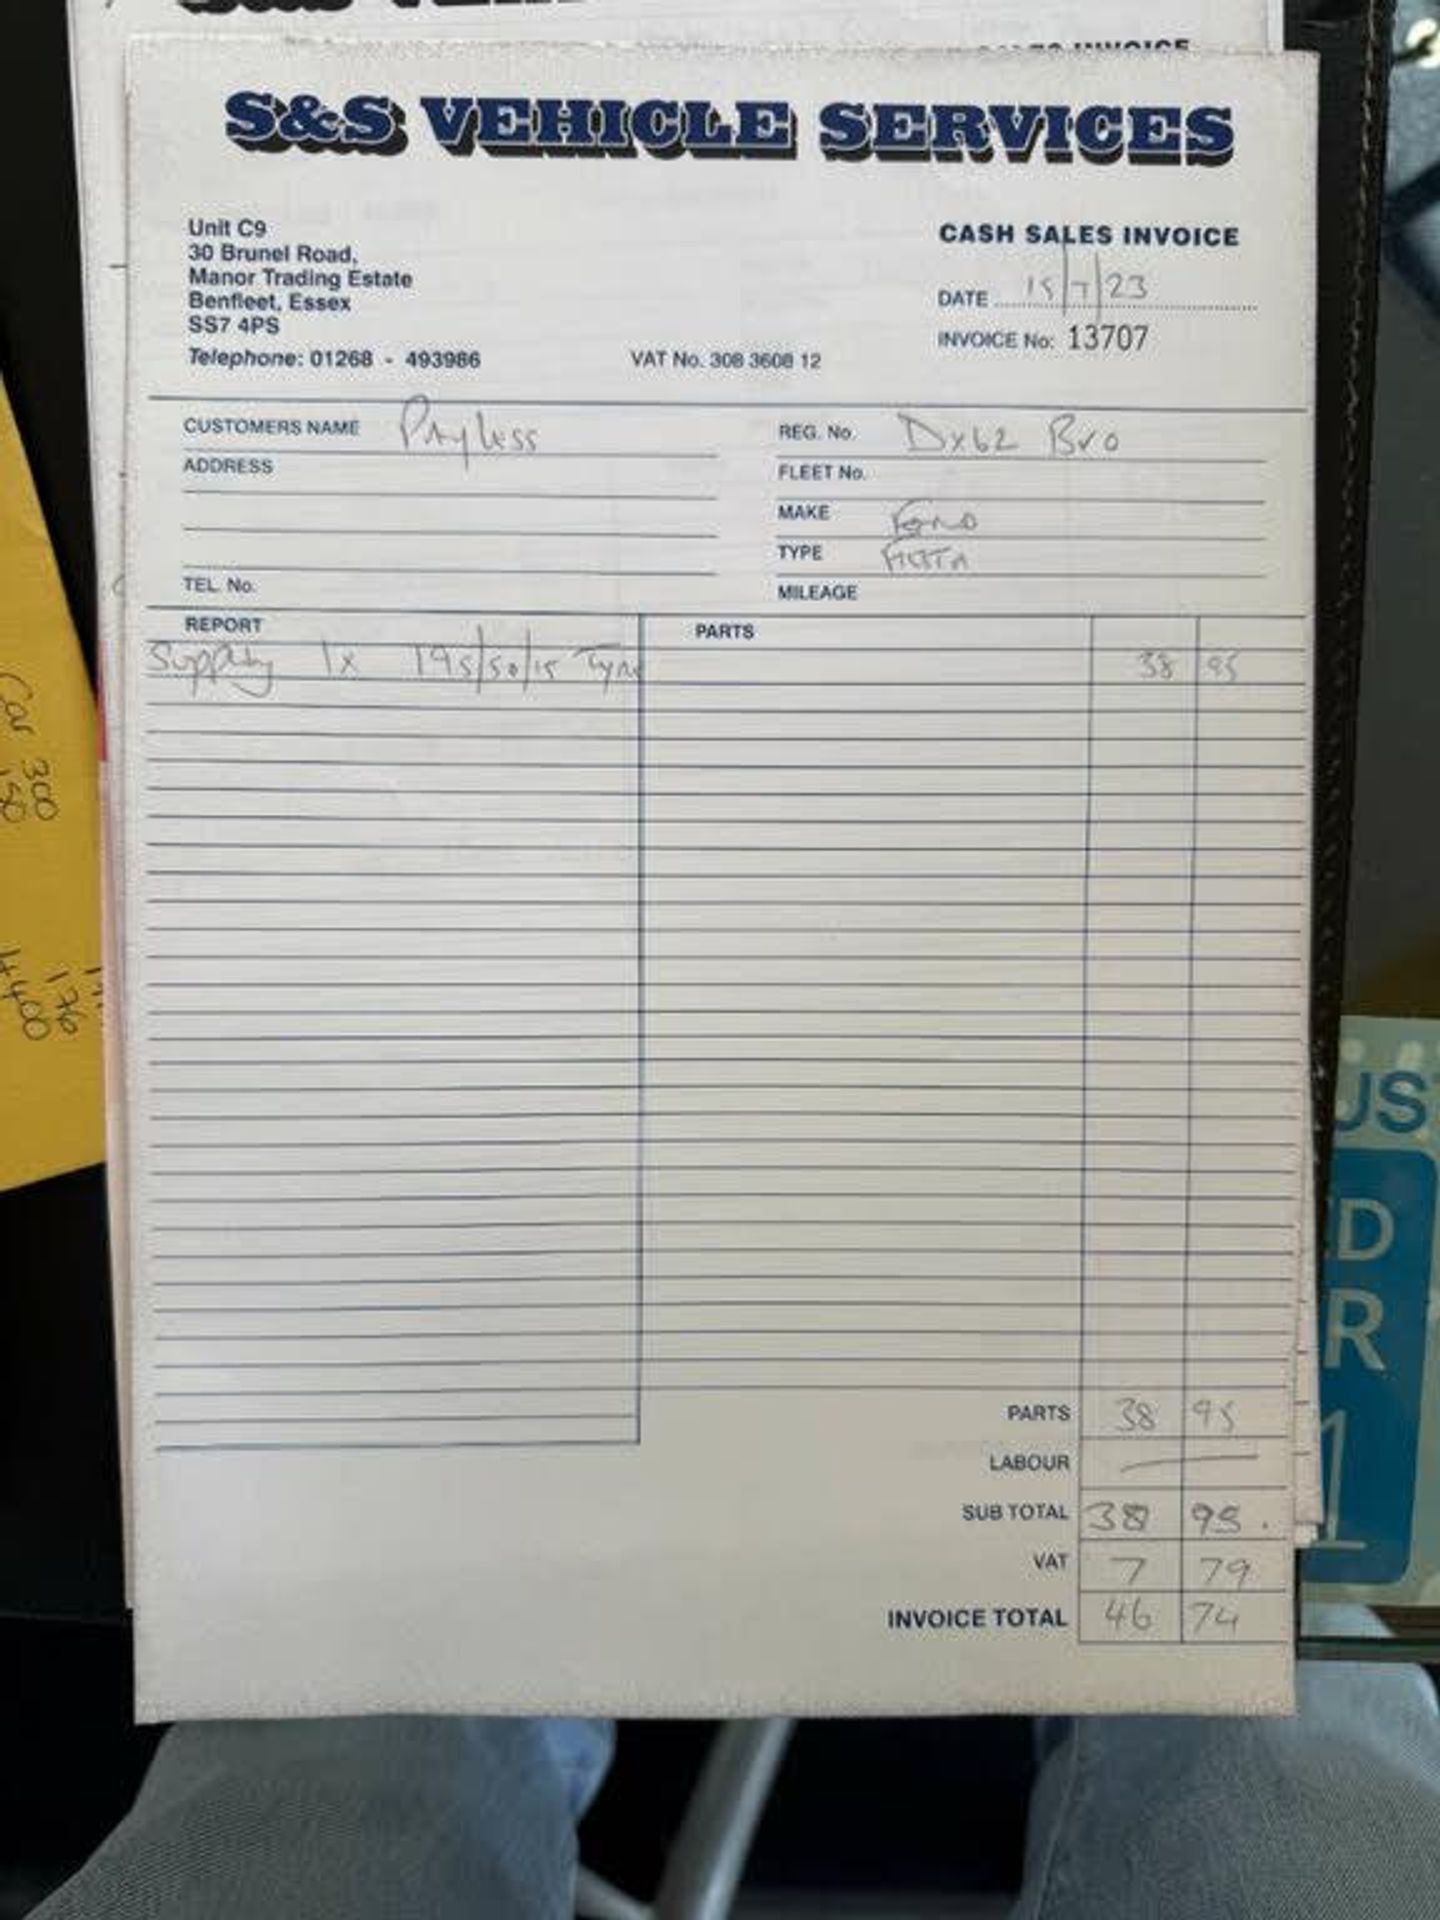 SALES INVOICE
S&S VEHICLE SERVICES
Unit C9
30 Brunel Road,
Manor Trading Estate
Benfleet, Essex
SS7 4PS
Telephone: 01268 - 493986
VAT No. 308 3608 12
CASH SALES INVOICE
DATE 15/7/23
INVOICE No: 13707
CUSTOMERS NAME Payless
ADDRESS
TEL. No.
REG. No. Dx62 Bvo
FLEET No.
MAKE Ford
TYPE Fiesta
MILEAGE
REPORT PARTS
Supply 1x 195/50/15 Tyre 38 95
PARTS 38 95
LABOUR —
SUB TOTAL 38 95.
VAT 7 79
INVOICE TOTAL 46 74
Car 300
150
176
4400
US
ED
R
1